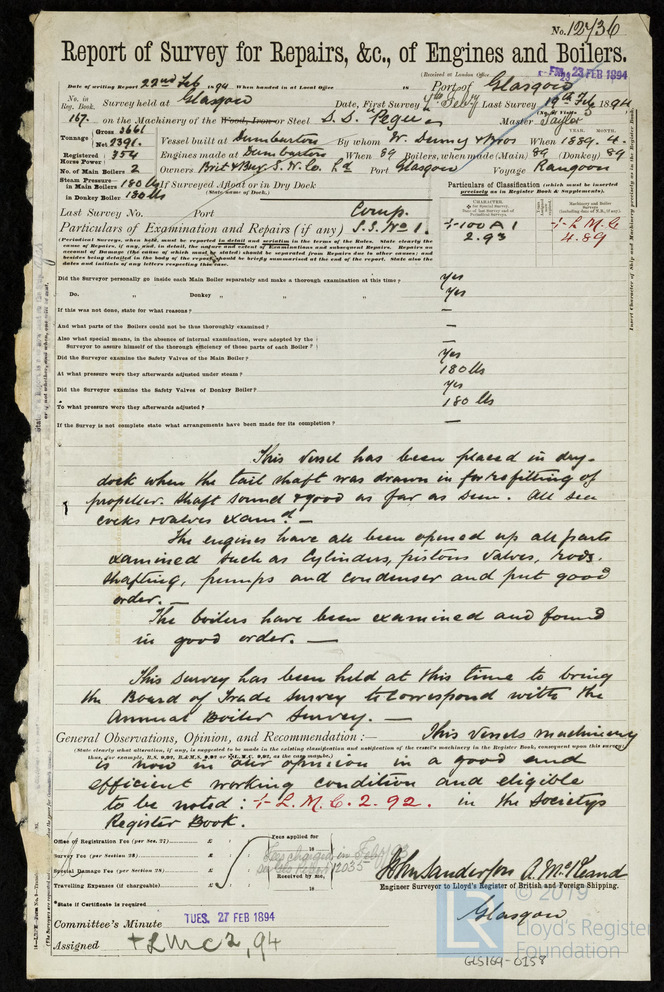 No. 12736
Report of Survey for Repairs, &c., of Engines and Boilers.
(Received at London Office
FRI. 23 FEB 1894
Date of writing Report 22nd Feb 1894 When handed in at Local Office 18 Port of Glasgow
No. in Reg. Book. Survey held at Glasgow Date, First Survey Feby Last Survey 19th Feb 1894
(No. of Visits
167. on the Machinery of the Wood, Iron or Steel S.S. Pegu Master Taylor
Tonnage Gross 2661 Net 2391
Vessel built at Dumbarton By whom W. Denny & Bros When 1889.4.
YEAR. MONTH.
Registered Horse Power 354 Engines made at Dumbarton When 89 Boilers, when made (Main) 89 (Donkey) 89
No. of Main Boilers 2 Owners Brit & Bur. S. N. Co. Ld Port Glasgow Voyage Rangoon
Steam Pressure in Main Boilers 180 lbs If Surveyed Afloat or in Dry Dock
in Donkey Boiler 180 lbs
(State name of Dock.)
Particulars of Classification (which must be inserted precisely as in Register Book & Supplements).
Last Survey No. Port Comp.
Particulars of Examination and Repairs (if any) S.S. No 1.
+100 A 1
2.93
+ L. M. C
4.89
Did the Surveyor personally go inside each Main Boiler separately and make a thorough examination at this time? yes
Do. Donkey " " " yes
If this was not done, state for what reasons? —
And what parts of the Boilers could not be thus thoroughly examined? —
Also what special means, in the absence of internal examination, were adopted by the Surveyor to assure himself of the thorough efficiency of those parts of each Boiler? —
Did the Surveyor examine the Safety Valves of the Main Boiler? yes
At what pressure were they afterwards adjusted under steam? 180 lbs
Did the Surveyor examine the Safety Valves of Donkey Boiler? yes
To what pressure were they afterwards adjusted? 180 lbs
If the Survey is not complete state what arrangements have been made for its completion? —
This vessel has been placed in dry-
dock when the tail shaft was drawn in for refitting of
propeller. Shaft sound & good as far as seen. All sea
cocks & valves examd. —
The engines have all been opened up all parts
examined such as Cylinders, pistons valves, rods,
shafting, pumps and condenser and put good
order. —
The boilers have been examined and found
in good order. —
This survey has been held at this time to bring
the Board of Trade Survey to correspond with the
Annual Boiler Survey. —
General Observations, Opinion, and Recommendation :— This vessels machinery
(State clearly what alteration, if any, is suggested to be made in the existing classification and notification of the vessel's machinery in the Register Book, consequent upon this survey,
is now in our opinion in a good and
efficient working condition and eligible
to be noted : + L. M. C. 2. 92. in the Societys
Register Book.
Office of Registration Fee (per Sec. 27) £
Survey Fee (per Section 28) £
Special Damage Fee (per Section 28) £
Travelling Expenses (if chargeable) £
Fees applied for
18
Fees charged in Feb/93
2035
Received by me,
18
John Sanderson
Engineer Surveyor to Lloyd's Register of British and Foreign Shipping.
Glasgow
State if Certificate is required
Committee's Minute TUES. 27 FEB 1894
Assigned + LMC 2,94
© 2019
LR
Lloyd's Register
Foundation
GLS169-0158